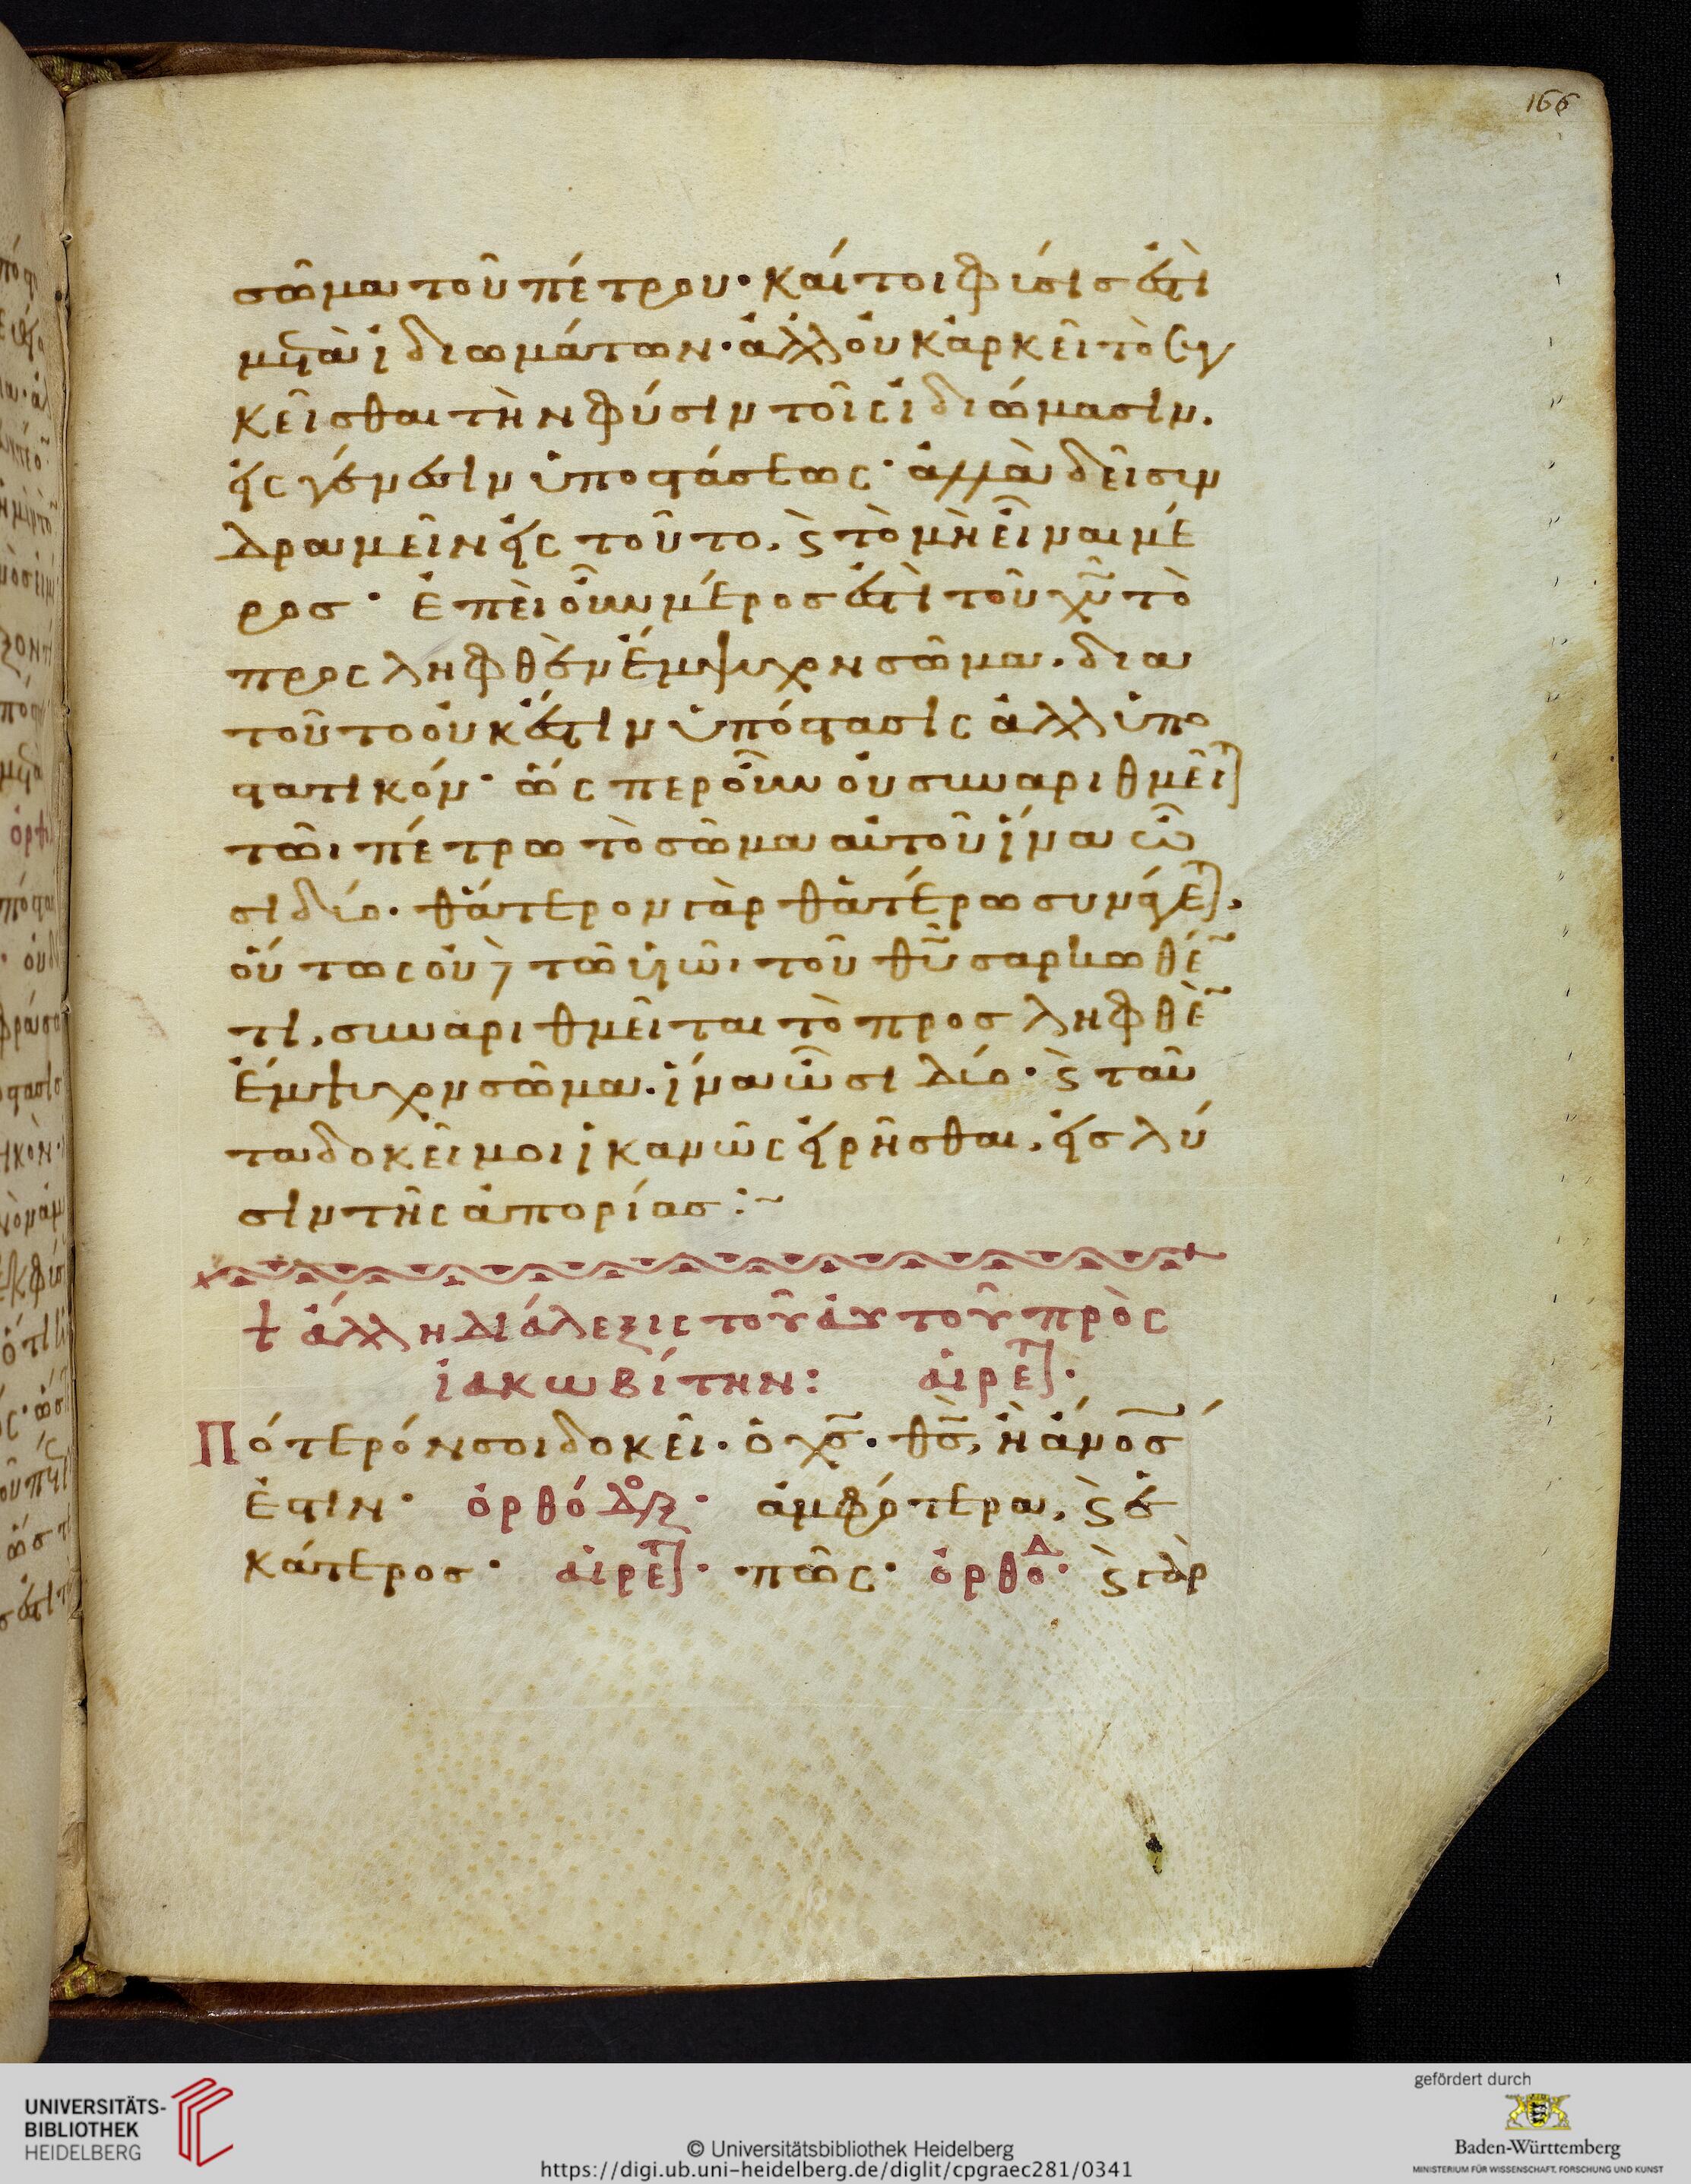 166
σῶμα τοῦ πέτρου· καίτοι φύσις ἐστὶ
μετὰ ἰδιωμάτων· ἀλλ οὐκ ἀρκεῖ τὸ συγ
κεῖσθαι τὴν φύσιν τοῖς ἰδιώμασιν.
εἰς γένεσιν ὑποστάσεως· ἀλλὰ δεῖ συν
δραμεῖν εἰς τοῦτο, ϛ τὸ μὴ εἶναι μέ
ρος· Ἐπεὶ οὖν μέρος ἐστὶ τοῦ χυ τὸ
προσληφθὲν ἔμψυχον σῶμα. δια
τοῦτο οὐκ ἔστιν ὑπόστασις ἀλλ ὑπο
στατικόν· ὥσπερ οὖν οὐ συναριθμεῖτ
τῶι πέτρω τὸ σῶμα αὐτοῦ ἵνα ὦ
σι δύο. θάτερον γὰρ θατέρω συνάγετ,
οὕτως οὐδὲ τῶ υἱῶι τοῦ θυ σαρκωθέ
τι, συναριθμεῖται τὸ προσληφθὲ
ἔμψυχον σῶμα. ἵνα ὦσι δύο· ϛ ταῦ
τα δοκεῖ μοι ἱκανῶς εἰρῆσθαι, εἰς λύ
σιν τῆς ἀπορίας :~
† ἄλλη διάλεξις τοῦ αὐτοῦ πρὸς
ἰακωβίτην: αἱρετ·
Πότερόν σοι δοκεῖ. ὁ χς. θς, ἢ ἄνος
ἐστιν· ὀρθόδοξ· ἀμφότερα, ϛ ἑ
κάτερος· αἱρετ· πῶς· ὀρθοδ· ϛ γὰρ
UNIVERSITÄTS-
BIBLIOTHEK
HEIDELBERG
© Universitätsbibliothek Heidelberg
https://digi.ub.uni-heidelberg.de/diglit/cpgraec281/0341
gefördert durch
Baden-Württemberg
MINISTERIUM FÜR WISSENSCHAFT, FORSCHUNG UND KUNST